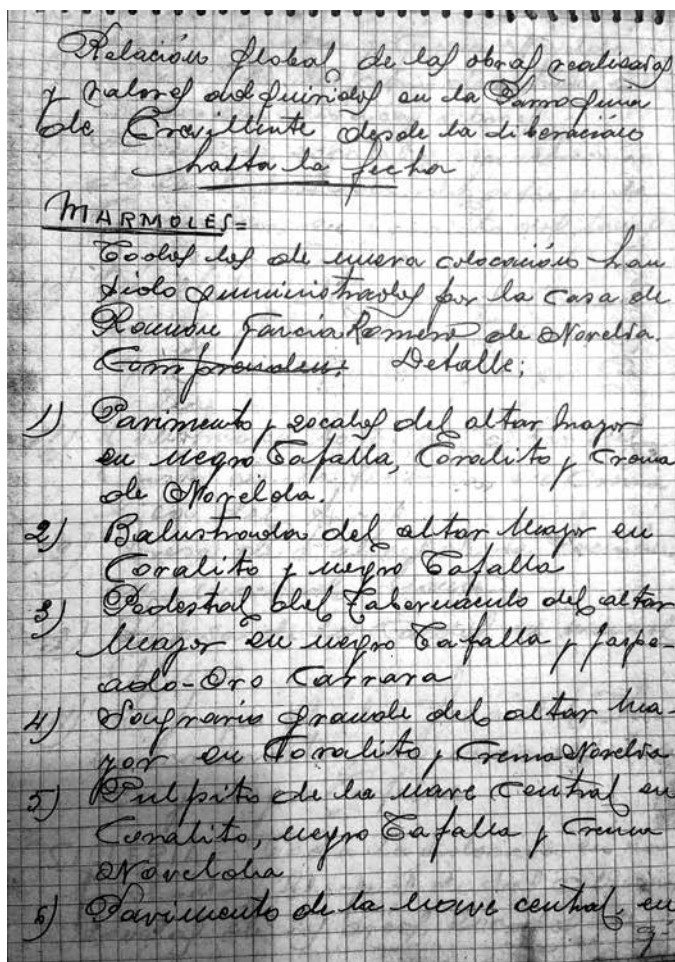 Relación global de las obras realisadas
y valores adquiridos en la Parroquia
de Crevillente desde la liberación
hasta la fecha
MARMOLES=
Todos los de nueva colocación han
sido suministrados por la casa de
Ramón García Romero de Novelda.
Comprenden: Detalle;
1) Pavimento y zocalos del altar mayor
en negro Tafalla, Coralito y Crema
de Novelda.
2) Balustrada del altar Mayor en
Coralito y negro Tafalla
3) Pedestal del Tabernáculo del altar
Mayor en negro Tafalla y jaspe-
ado-Oro Carrara
4) Sagrario grande del altar ma-
yor en Coralito y Crema Novelda
5) Pulpito de la nave Central en
Coralito, negro Tafalla y Crema
Novelda
6) Pavimento de la nave central, en